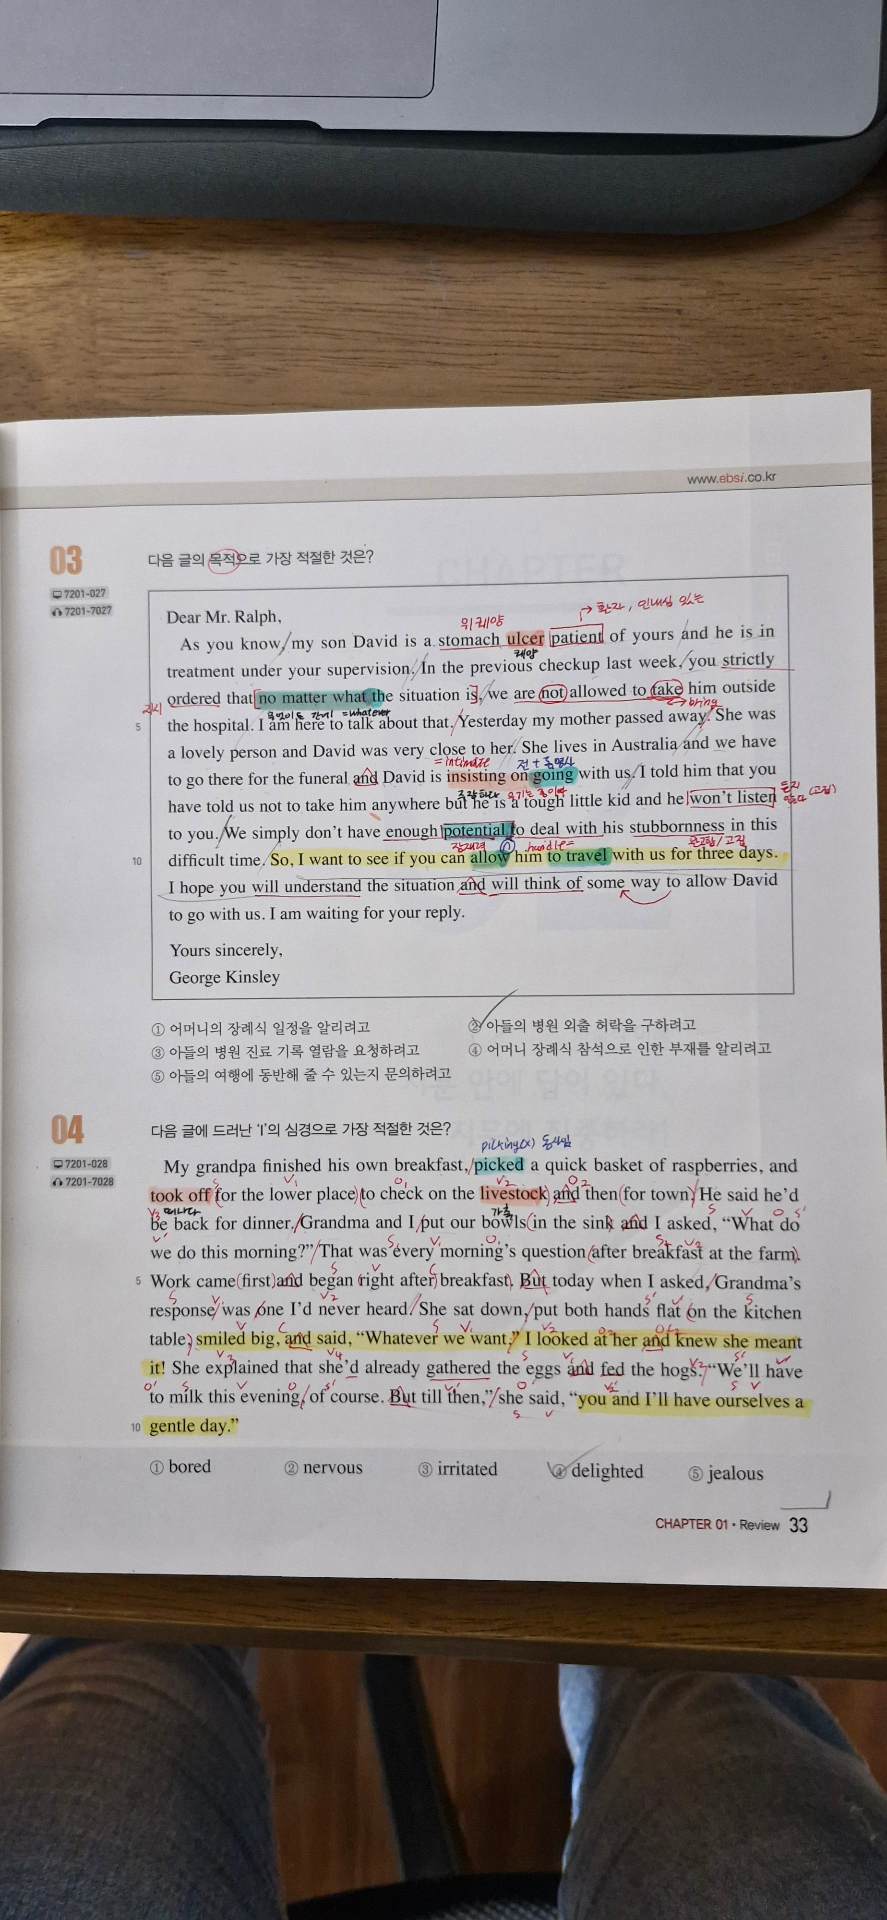 www.ebsi.co.kr
03
다음 글의 목적으로 가장 적절한 것은?
7201-027
7201-7027
→ 환자, 인내심 있는
위궤양
Dear Mr. Ralph,
As you know, my son David is a stomach ulcer patient of yours and he is in
궤양
treatment under your supervision. In the previous checkup last week, you strictly
ordered that no matter what the situation is, we are not allowed to take him outside
지시
=whatever
bring
5 the hospital. I am here to talk about that. Yesterday my mother passed away. She was
a lovely person and David was very close to her. She lives in Australia and we have
= intimate
전+동명사
to go there for the funeral and David is insisting on going with us. I told him that you
have told us not to take him anywhere but he is a tough little kid and he won't listen
(고집)
to you. We simply don't have enough potential to deal with his stubbornness in this
잠재력
handle=
완고함/고집
10 difficult time. So, I want to see if you can allow him to travel with us for three days.
I hope you will understand the situation and will think of some way to allow David
to go with us. I am waiting for your reply.
Yours sincerely,
George Kinsley
① 어머니의 장례식 일정을 알리려고
② 아들의 병원 외출 허락을 구하려고
③ 아들의 병원 진료 기록 열람을 요청하려고
④ 어머니 장례식 참석으로 인한 부재를 알리려고
⑤ 아들의 여행에 동반해 줄 수 있는지 문의하려고
04
다음 글에 드러난 'I'의 심경으로 가장 적절한 것은?
7201-028
7201-7028
picking(x) 동사임
My grandpa finished his own breakfast, picked a quick basket of raspberries, and
took off for the lower place to check on the livestock and then for town. He said he'd
떠나다
가축
be back for dinner. Grandma and I put our bowls in the sink and I asked, "What do
we do this morning?" That was every morning's question after breakfast at the farm.
5 Work came first and began right after breakfast. But today when I asked, Grandma's
response was one I'd never heard. She sat down, put both hands flat on the kitchen
table, smiled big, and said, "Whatever we want." I looked at her and knew she meant
it! She explained that she'd already gathered the eggs and fed the hogs. "We'll have
to milk this evening, of course. But till then," she said, "you and I'll have ourselves a
10 gentle day."
① bored
② nervous
③ irritated
④ delighted
⑤ jealous
CHAPTER 01 • Review 33